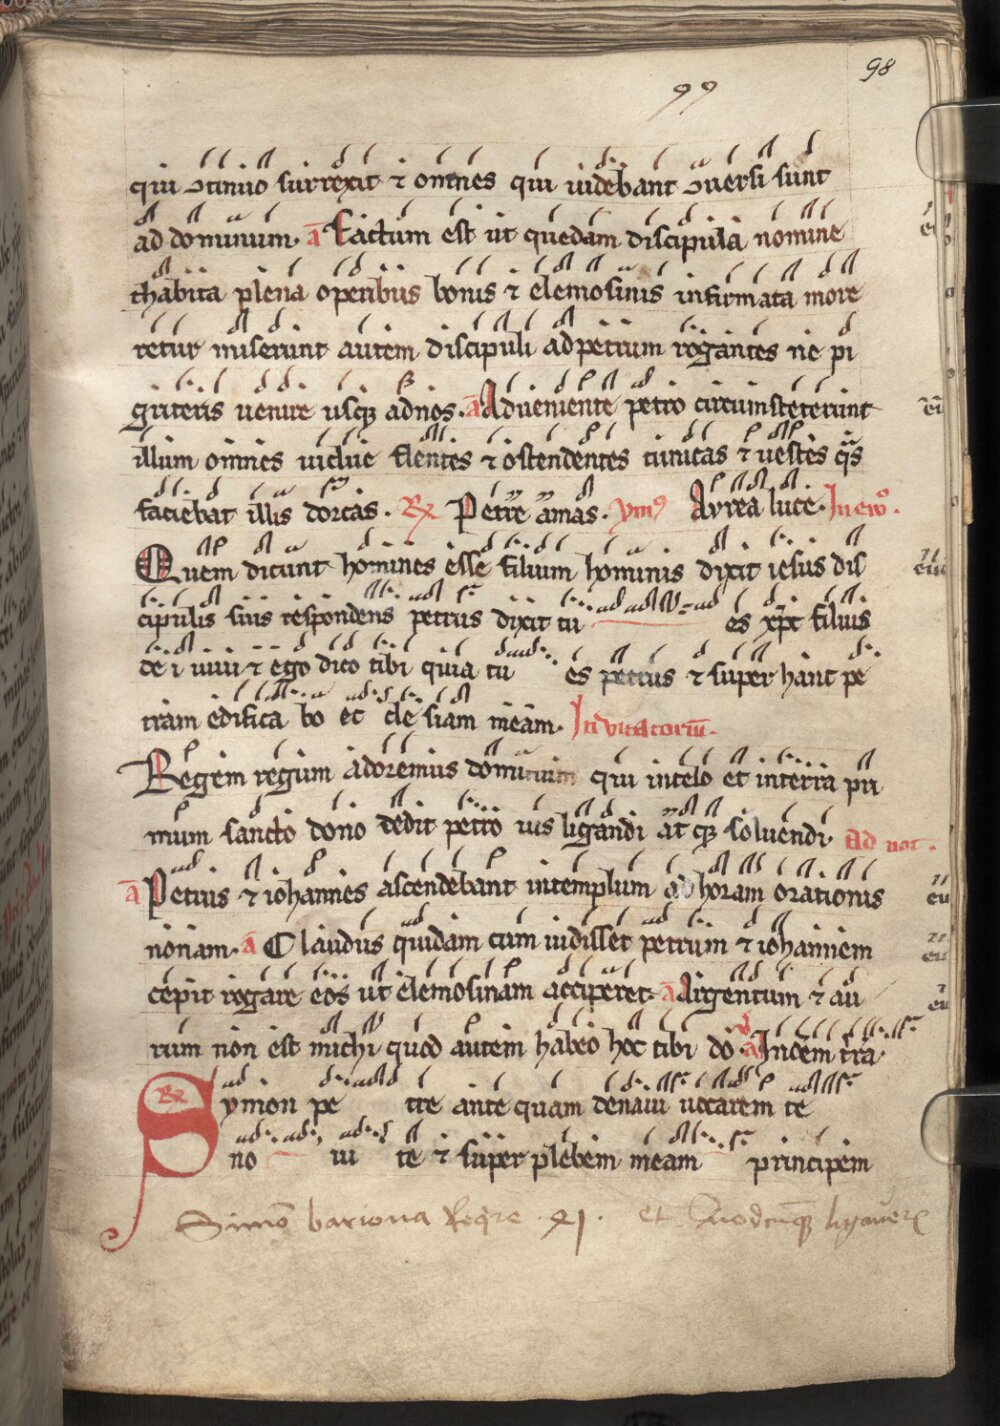 98
99
qui ↄtinuo surrexit ⁊ omnes qui uidebant ↄuersi sunt
ad dominum. a̅ Factum est ut quedam discipula nomine
thabita plena operibus bonis ⁊ elemosinis infirmata more
retur miserunt autem discipuli ad petrum rogantes ne pi
griteris uenire usq; ad nos. a̅ Adueniente petro circumsteterunt
illum omnes uidue flentes ⁊ ostendentes tunicas ⁊ uestes q̅s
faciebat illis dorcas. R̷ Petre amas. ymn⁹ Avrea luce. In ew̅o.
Quem dicunt homines esse filium hominis dixit iesus dis
cipulis suis respondens petrus dixit tu es xp̅c filius
de i uiui ⁊ ego dico tibi quia tu es petrus ⁊ super hanc pe
tram edifica bo et cle siam meam. Inuitatoriu̅.
Regem regum adoremus dominum qui in celo et in terra pri
mum sancto dono dedit petro ius ligandi at q; soluendi. Ad noc.
a̅ Petrus ⁊ iohannes ascendebant in templum ad horam orationis
nonam. a̅ Claudus quidam cum uidisset petrum ⁊ iohannem
cepit rogare eos ut elemosinam acciperet. a̅ Argentum ⁊ au
rum non est michi quod autem habeo hoc tibi do. In o̅em t̅ra̅.
R̷ Symon pe tre ante quam de naui uocarem te
no ui te ⁊ super plebem meam principem
Simo̅ bariona Req̅re .91. et Quodcu̅q; ligauer̅